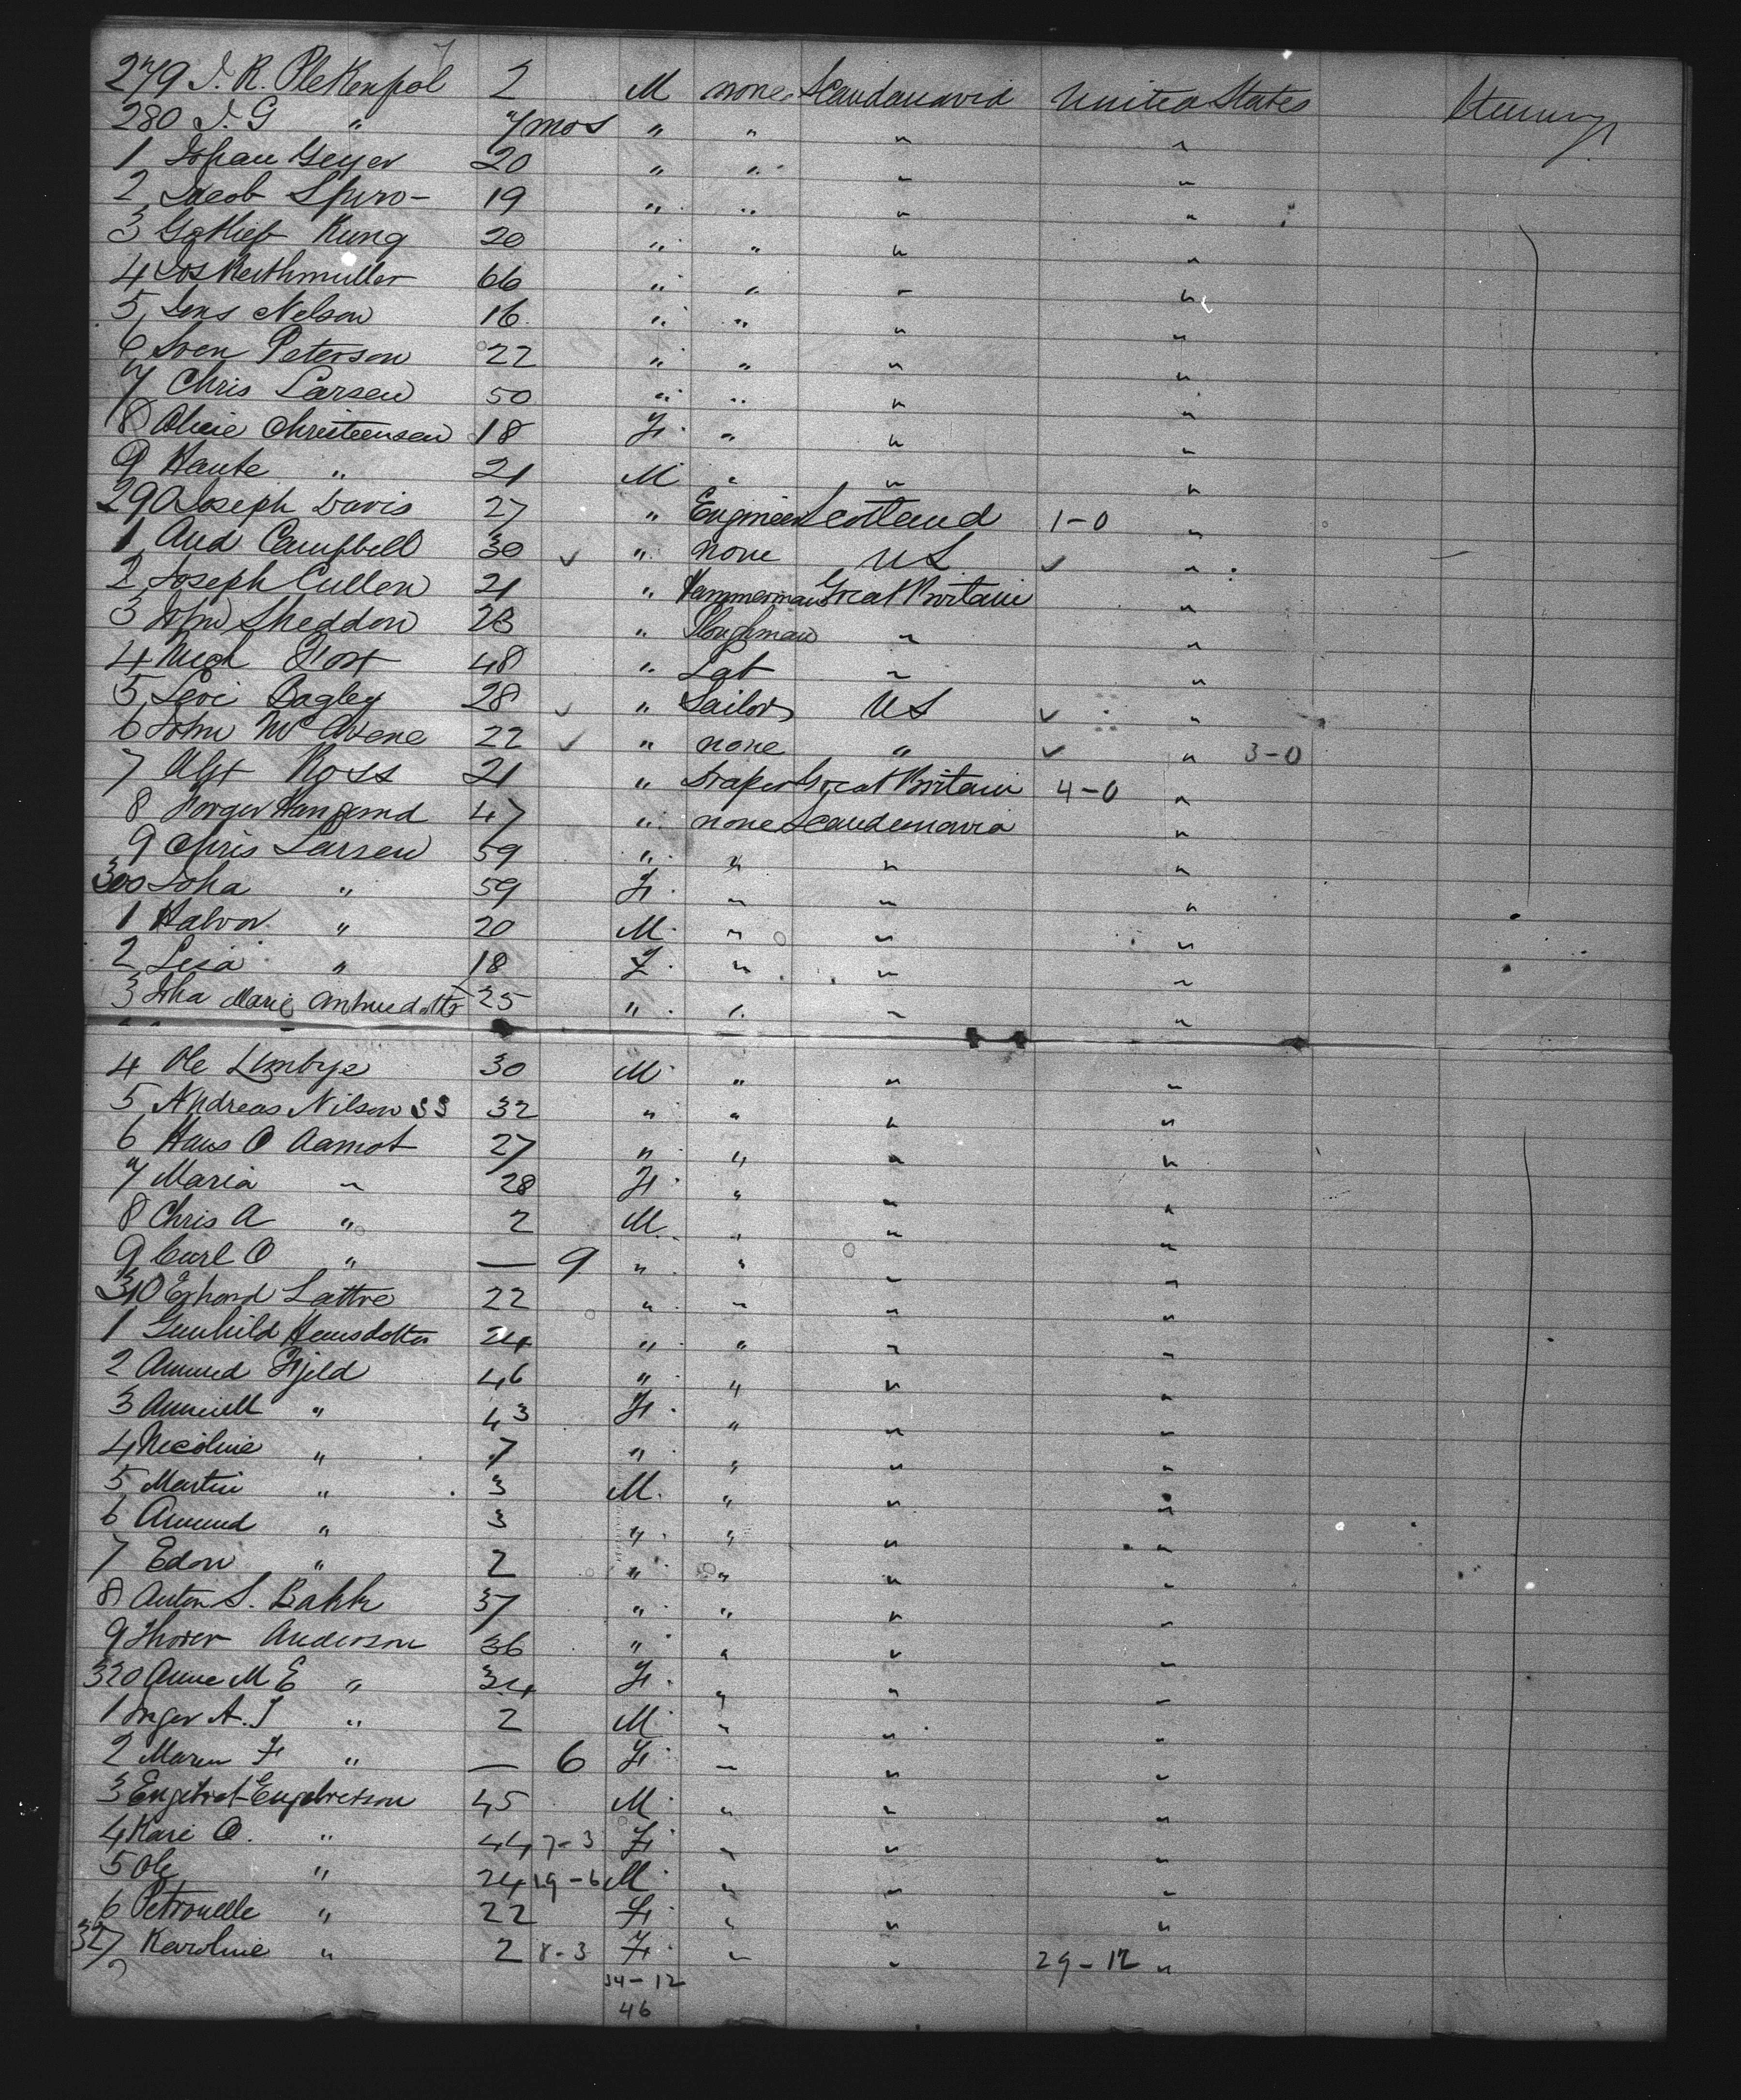 279 J. R. Plekenpol 2 M none Scandanavia United States
280 J. G " 7 mos " " " "
1 Johan Geyer 20 " " " "
2 Jacob Spiro - 19 " " " "
3 Gotlieb Kung 20 " " " "
4 Jos Reithmuller 66 " " " "
5 Jens Nelson 16 " " " "
6 Sven Peterson 22 " " " "
7 Chris Larsen 50 " " " "
8 Christeensen 18 F " " "
9 Haute " 21 M " " "
290 Joseph Davis 27 " Engineer Scotland 1-0 "
1 And Campbell 30 ✓ " none US ✓ "
2 Joseph Cullen 21 " Hammerman Great Britain "
3 John Sheddon 23 " Ploughman " "
4 Mich 48 " Lab " "
5 Levi Bagley 28 ✓ " Sailor US ✓ "
6 John 22 ✓ " none " ✓ " 3-0
7 Alex Ross 21 " Draper Great Britain 4-0 "
8 47 " none Scandenavia "
9 Chris Larsen 59 " " " "
300 Joha " 59 F " " "
1 Halvor " 20 M " " "
2 Lisa " 18 F " " "
3 Joha Marie 25 " " " "
4 Ole 30 M " " "
5 Andreas Nilson SS 32 " " " "
6 Hans O Aamot 27 " " " "
7 Maria " 28 F " " "
8 Chris A " 2 M " " "
9 Carl O " — 9 " " " "
310 Lattre 22 " " " "
1 Gunhild Hansdotter 24 " " " "
2 Amund Fjeld 46 " " " "
3 " 43 F " " "
4 Nicoline " 7 " " " "
5 Martin " 3 M " " "
6 Amund " 3 " " " "
7 Edon " 2 " " " "
8 Anton S. Bakk 37 " " " "
9 Thorer Anderson 36 " " " "
320 Anne M E " 34 F " " "
1 Inger A. T " 2 M " " "
2 Maren F " — 6 F " " "
3 Engebret Engebretson 45 M " " "
4 Kari O. " 44 7-3 F " " "
5 Ole " 24 19-6 M " " "
6 Petronelle " 22 F " " "
327 Karoline " 2 8-3 F " " 29-12 "
34-12
46